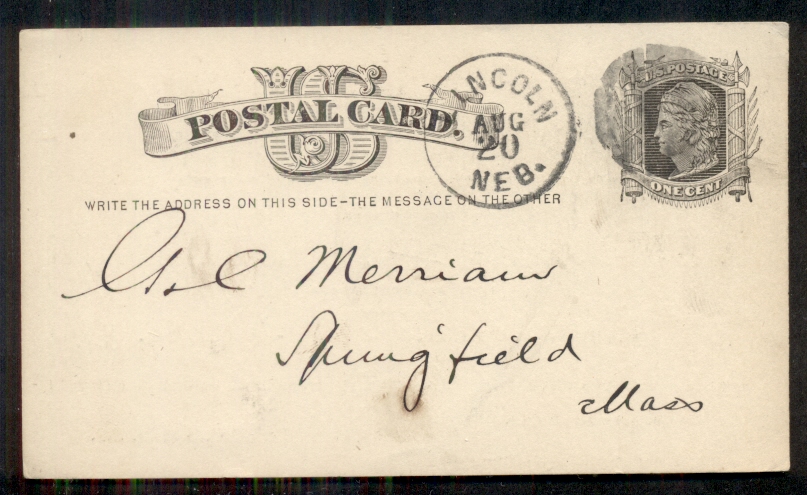 US
POSTAL CARD.
LINCOLN
AUG
20
NEB.
U.S. POSTAGE
ONE CENT
WRITE THE ADDRESS ON THIS SIDE-THE MESSAGE ON THE OTHER
Merriam
Springfield
Mass